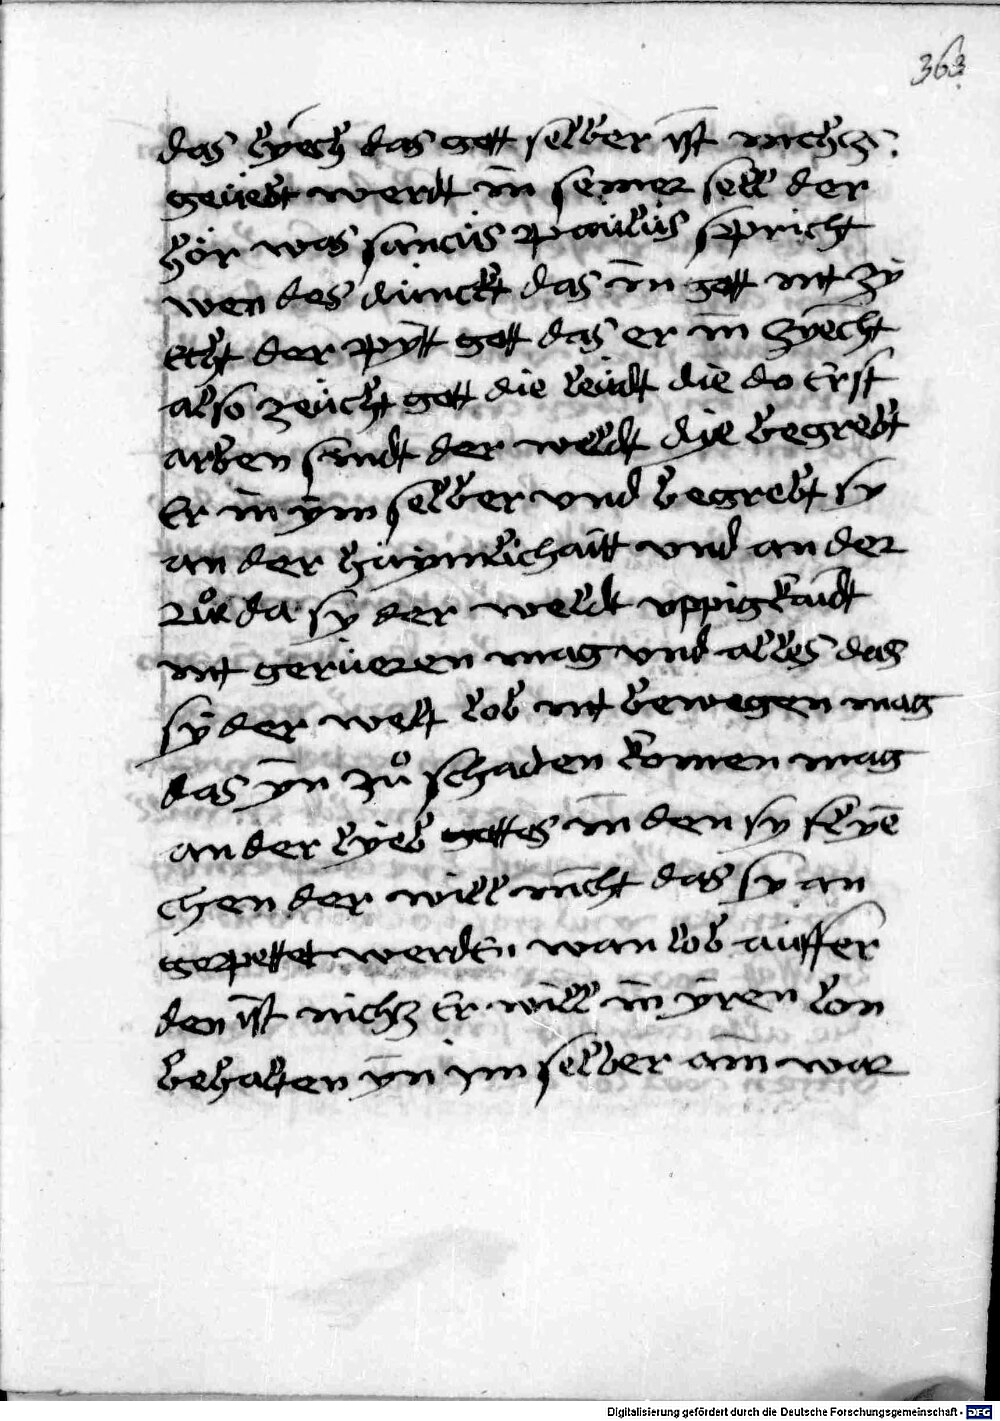 363
das lyech das gott selber ist nichtz
geüebt werdt in seiner sell der
hör was sanctüs paulüs spricht
wen des dünckt das in gott nit zü
echt der pytt gott das er in zyecht
also zeücht gott die leüdt die do erst
arben sindt der weldt die begrebt
Er in ym selber vnd begrebt sy
an der haymlichaitt vnd an der
růe da sy der weldt vppigkaidt
nit gerüeren mag vnd alles das
sy der welt lob nit bewegen mag
das yn zů schaden komen mag
an der lyeb gottes in den sy flyē
chen der will nicht das sy an
gepettet werden wan lob auffer
den ist nichz Er will in yren lon
behalten yn im selber am war